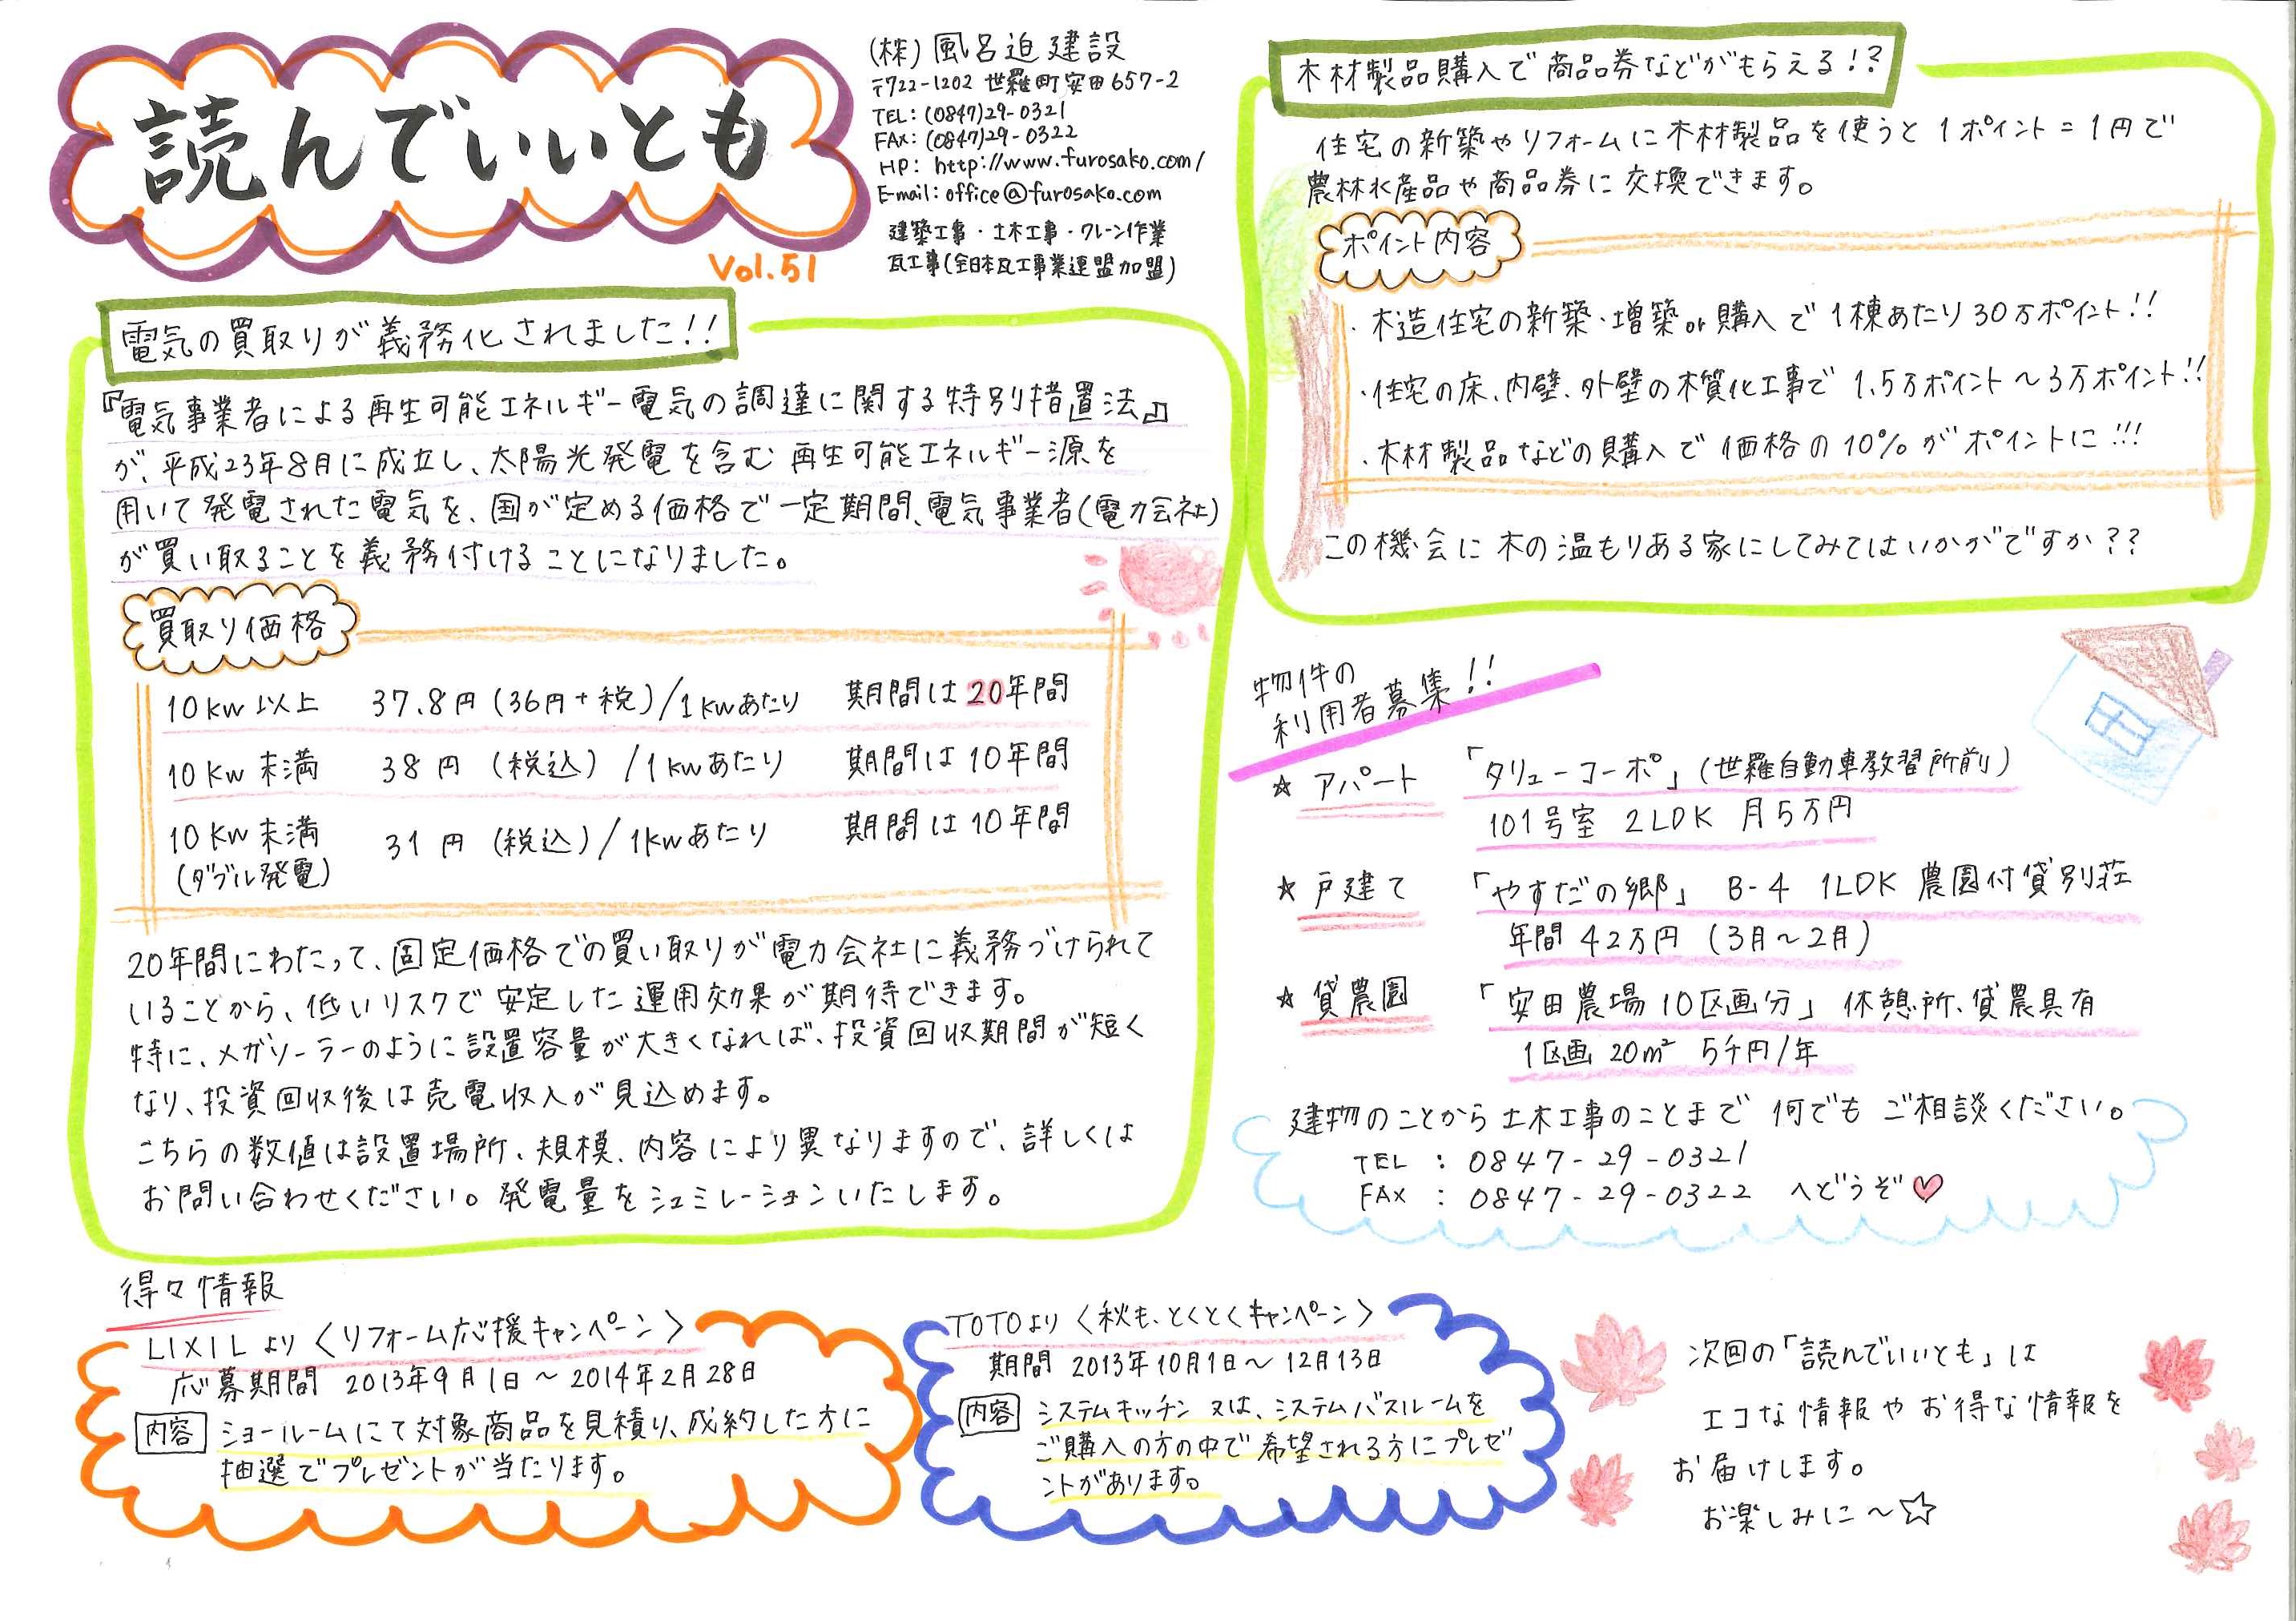 読んでいいとも
Vol.51
(株)風呂迫建設
〒722-1202 世羅町安田657-2
TEL:(0847)29-0321
FAX:(0847)29-0322
HP: http://www.furosako.com/
E-mail:office@furosako.com
建築工事・土木工事・クレーン作業
瓦工事(全日本瓦工事業連盟加盟)
電気の買取りが義務化されました!!
『電気事業者による再生可能エネルギー電気の調達に関する特別措置法』
が、平成23年8月に成立し、太陽光発電を含む再生可能エネルギー源を
用いて発電された電気を、国が定める価格で一定期間、電気事業者(電力会社)
が買い取ることを義務付けることになりました。
買取り価格
10kw以上 37.8円(36円+税)/1kwあたり 期間は20年間
10kw未満 38円(税込)/1kwあたり 期間は10年間
10kw未満 31円(税込)/1kwあたり 期間は10年間
(ダブル発電)
20年間にわたって、固定価格での買い取りが電力会社に義務づけられて
いることから、低いリスクで安定した運用効果が期待できます。
特に、メガソーラーのように設置容量が大きくなれば、投資回収期間が短く
なり、投資回収後は売電収入が見込めます。
こちらの数値は設置場所、規模、内容により異なりますので、詳しくは
お問い合わせください。発電量をシュミレーションいたします。
木材製品購入で商品券などがもらえる!?
住宅の新築やリフォームに木材製品を使うと1ポイント=1円で
農林水産品や商品券に交換できます。
ポイント内容
・木造住宅の新築・増築or購入で1棟あたり30万ポイント!!
・住宅の床、内壁、外壁の木質化工事で1.5万ポイント〜3万ポイント!!
・木材製品などの購入で価格の10%がポイントに!!!
この機会に木の温もりある家にしてみてはいかがですか??
物件の
利用者募集!!
☆ アパート 「タリューコーポ」(世羅自動車教習所前)
101号室 2LDK 月5万円
☆ 戸建て 「やすだの郷」 B-4 1LDK 農園付貸別荘
年間42万円(3月〜2月)
☆ 貸農園 「安田農場10区画分」休憩所、貸農具有
1区画 20m² 5千円/年
建物のことから土木工事のことまで何でもご相談ください。
TEL : 0847-29-0321
FAX : 0847-29-0322 へどうぞ♡
得々情報
LIXILより〈リフォーム応援キャンペーン〉
応募期間 2013年9月1日〜2014年2月28日
内容 ショールームにて対象商品を見積り、成約した方に
抽選でプレゼントが当たります。
TOTOより〈秋も、とくとくキャンペーン〉
期間 2013年10月1日〜12月13日
内容 システムキッチン又は、システムバスルームを
ご購入の方の中で希望される方にプレゼ
ントがあります。
次回の「読んでいいとも」は
エコな情報やお得な情報を
お届けします。
お楽しみに〜☆